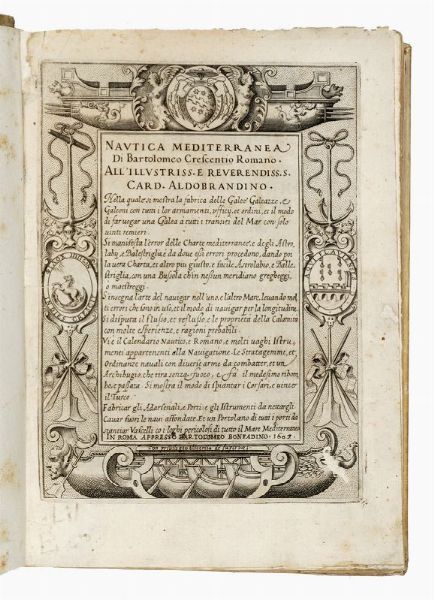 NAVTICA MEDITERRANEA
Di Bartolomeo Crescentio Romano.
ALL'ILLVSTRISS. E REVERENDISS. S.
CARD. ALDOBRANDINO.
Nella quale si mostra la fabrica delle Galee Galeazze, e
Galeoni con tutti lor armamenti, ufficij, et ordini, et il modo
di far uogar una Galea a tutti i transiti del Mar con solo
uinti remieri.
Si manifesta l'error delle Charte mediterranee, e degli Astro
labij, e Balestriglia e da doue essi errori procedono, dando poi
la uera Charta, et altro piu giusto, e facile Astrolabio, e Bale
striglia, con una Bussola ch'in nessun meridiano gregheggi,
o maestreggi.
S'insegna l'arte del nauigar nell'uno, e l'altro Mare, leuando mol
ti errori che sono in uso, et il modo di nauigar per la longitudine.
Si disputa il flusso, et reflusso, e le proprieta della Calamita
con molte esperienze, e ragioni probabili.
V'e il Calendario Nautico, e Romano, e molti nuoghi Istru
menti appartenenti alla Nauigatione. Le Stratagemme, et
Ordinanze nauali con diuerse arme da combatter, et un
Archibugio, che tira senza fuoco, e fa il medesimo ribom
bo, e passata. Si mostra il modo di spiantar i Corsari, e uincer
il Turco.
Fabricar gli Adarsenali, e Porti, e gli Istrumenti da nettargli
Cauar fuori le naui affondate. Et un Portolano di tutti i porti da
stantiar Vascelli, co i loghi pericolosi di tutto il Mare Mediterraneo
IN ROMA APPRESSO BARTOLOMEO BONFADINO. 1607